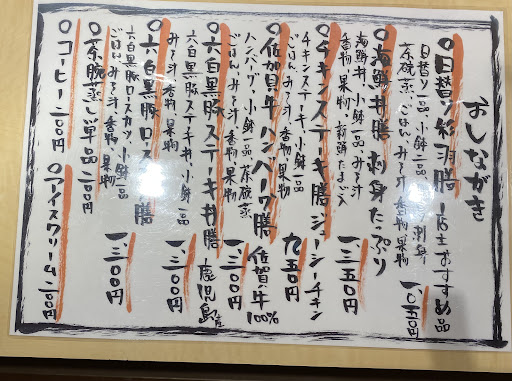 おしながき
〇日替り彩羽膳 店主おすすめ品
日替り一品、小鉢一品、刺身
茶碗蒸し、ごはん、みそ汁 香物 果物
一、〇五〇円
〇海鮮丼膳 刺身たっぷり
海鮮丼、小鉢一品、みそ汁
香物、果物、
一、三五〇円
〇チキンステーキ膳 ジューシーチキン
チキンステーキ、小鉢一品
ごはん みそ汁 香物 果物
九五〇円
〇佐賀牛ハンバーグ膳 佐賀牛100%
ハンバーグ、小鉢一品、茶碗蒸
ごはん みそ汁 香物 果物
一、三〇〇円
〇六白黒豚ステーキ丼膳 鹿児島産
六白黒豚ステーキ丼、小鉢一品
みそ汁 香物 果物
一、三〇〇円
〇六白黒豚ロース膳
六白黒豚ロースカツ、小鉢一品
ごはん みそ汁 香物 果物
一、三〇〇円
〇茶碗蒸し単品 二〇〇円
〇コーヒー 二〇〇円
〇アイスクリーム 二〇〇円